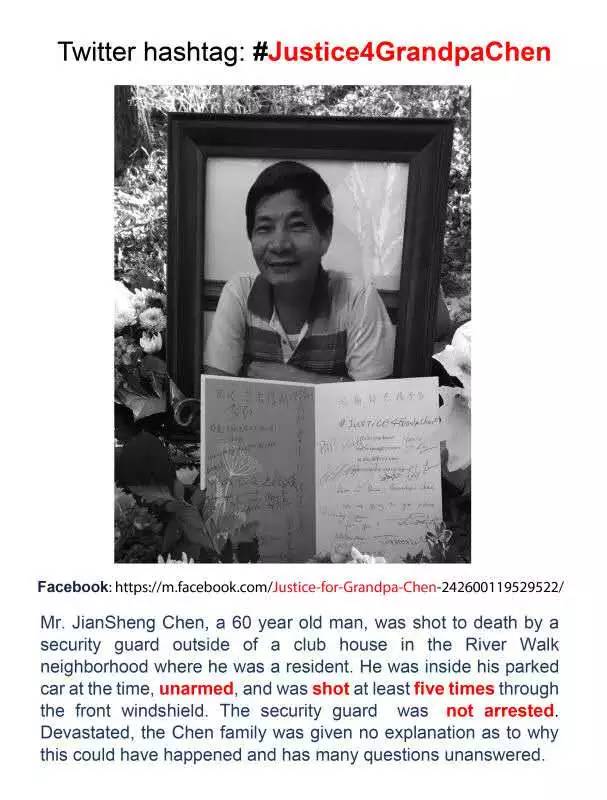 Twitter hashtag: #Justice4GrandpaChen
#JUSTICE4GrandpaChen
Facebook: https://m.facebook.com/Justice-for-Grandpa-Chen-242600119529522/
Mr. JianSheng Chen, a 60 year old man, was shot to death by a
security guard outside of a club house in the River Walk
neighborhood where he was a resident. He was inside his parked
car at the time, unarmed, and was shot at least five times through
the front windshield. The security guard was not arrested.
Devastated, the Chen family was given no explanation as to why
this could have happened and has many questions unanswered.